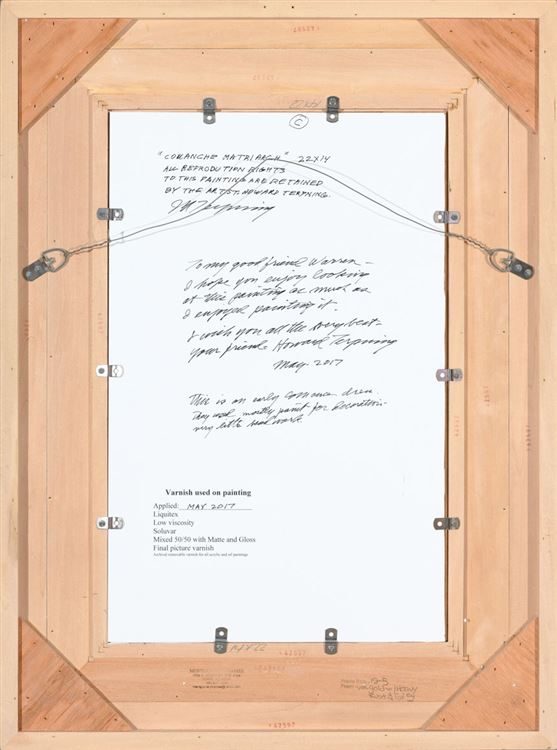 ©
"COMANCHE MATRIARCH" 22X14
ALL REPRODUTION RIGHTS
TO THIS PAINTING ARE RETAINED
BY THE ARTIST, HOWARD TERPNING.
H Terpning
To my good friend Warren –
I hope you enjoy looking
at this painting as much as
I enjoyed painting it.
I wish you all the very best–
your friend, Howard Terpning
May – 2017
This is an early Comanche dress
They used mostly paint for decoration–
very little bead work
Varnish used on painting
Applied: MAY 2017
Liquitex
Low viscosity
Soluvar
Mixed 50/50 with Matte and Gloss
Final picture varnish
Archival removable varnish for all acrylic and oil paintings
14X22